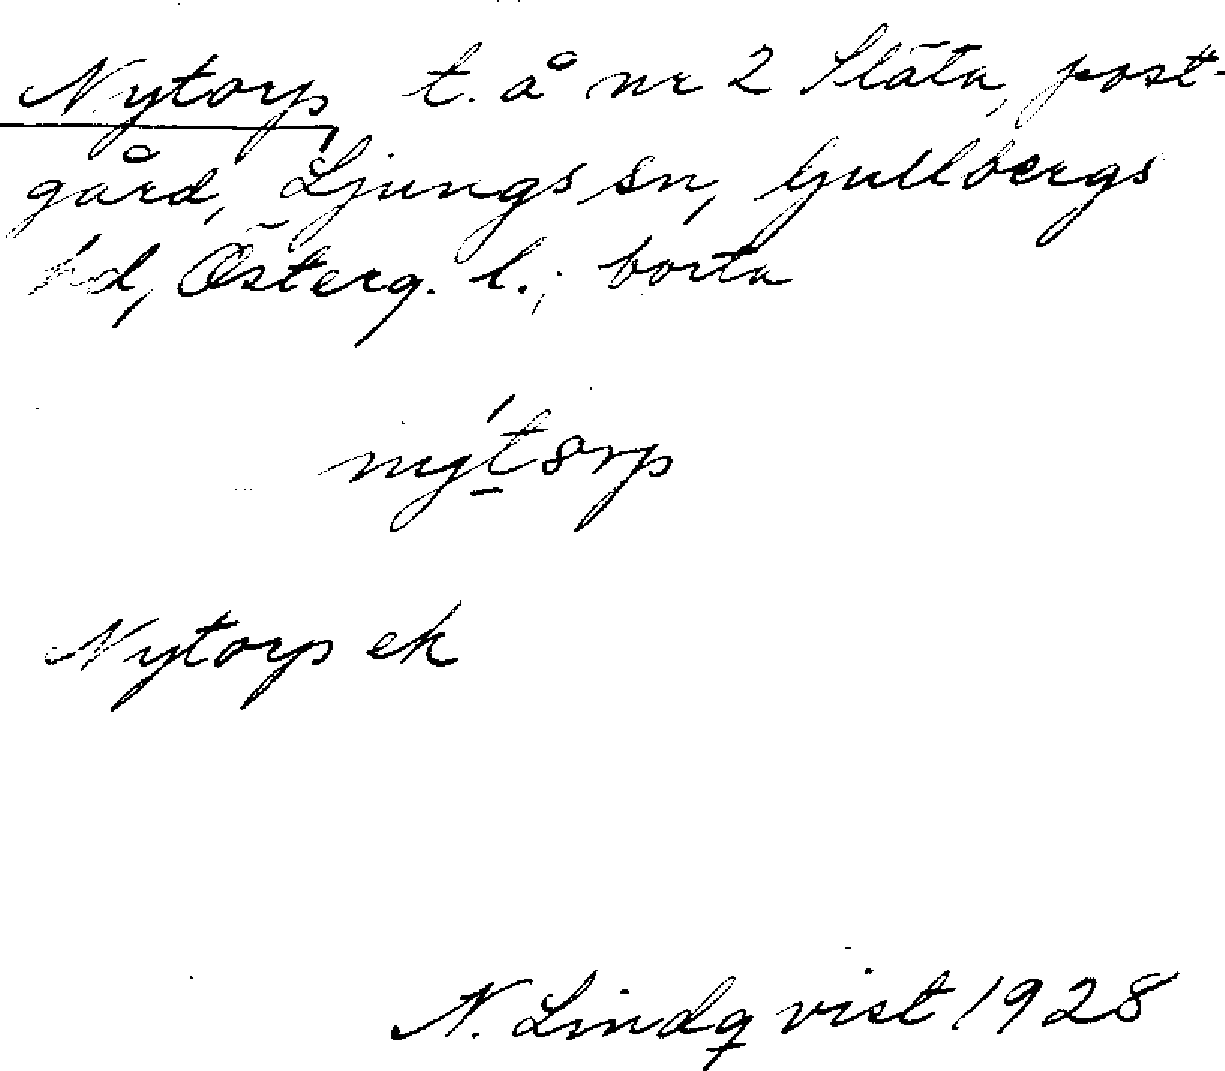 Nytorp, t. å nr 2 Släta, post-
gård, Ljungs sn, Gullbergs
hd, Österg. l.; borta
Nytorp ek
N. Lindqvist 1928